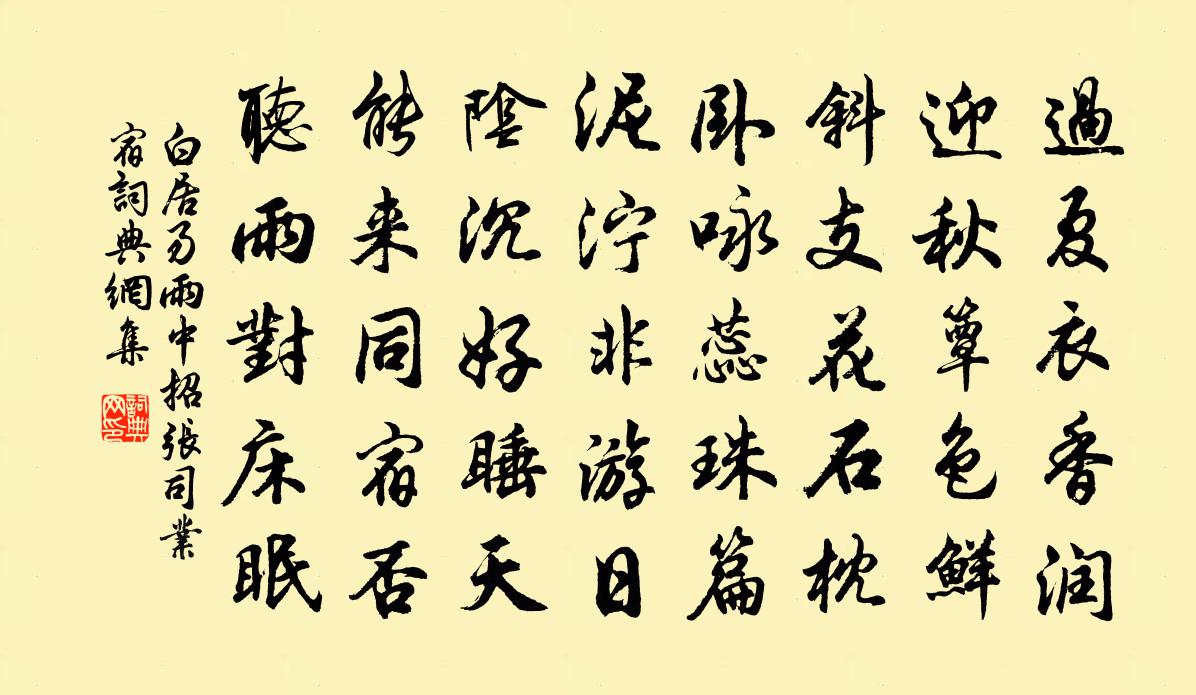 過夏衣香润
迎秋簟色鮮
斜支花石枕
卧咏蕊珠篇
泥泞非游日
陰沉好睡天
能来同宿否
聽雨對床眠
白居易雨中招張司業
宿詞典網集
詞典
网印